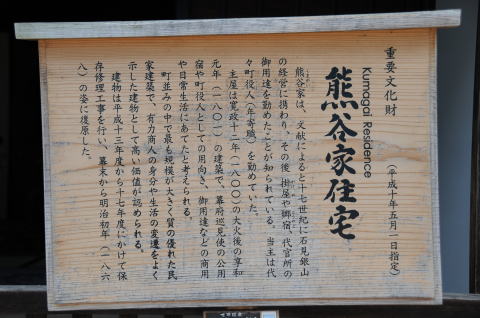 重要文化財
(平成十年五月一日指定)
Kumagai Residence
熊谷家住宅
熊谷家は、文献によると十七世紀に石見銀山
の経営に携わり、その後、掛屋や郷宿、代官所の
御用達を勤めたことが知られている。当主は代
々町役人(年寄職)を勤めていた。
主屋は寛政十二年(一八〇〇)の大火後の享和
元年(一八〇一)の建築で、幕府巡見使の公用
宿や町役人としての用向き、御用達などの商用
や日常生活にあてたと考えられる。
町並みの中で最も規模が大きく質の優れた民
家建築で、有力商人の身分や生活の変遷をよく
示した建物として高い価値が認められる。
建物は平成十三年度から十七年度にかけて保
存修理工事を行い、幕末から明治初年(一八六
八)の姿に復原した。